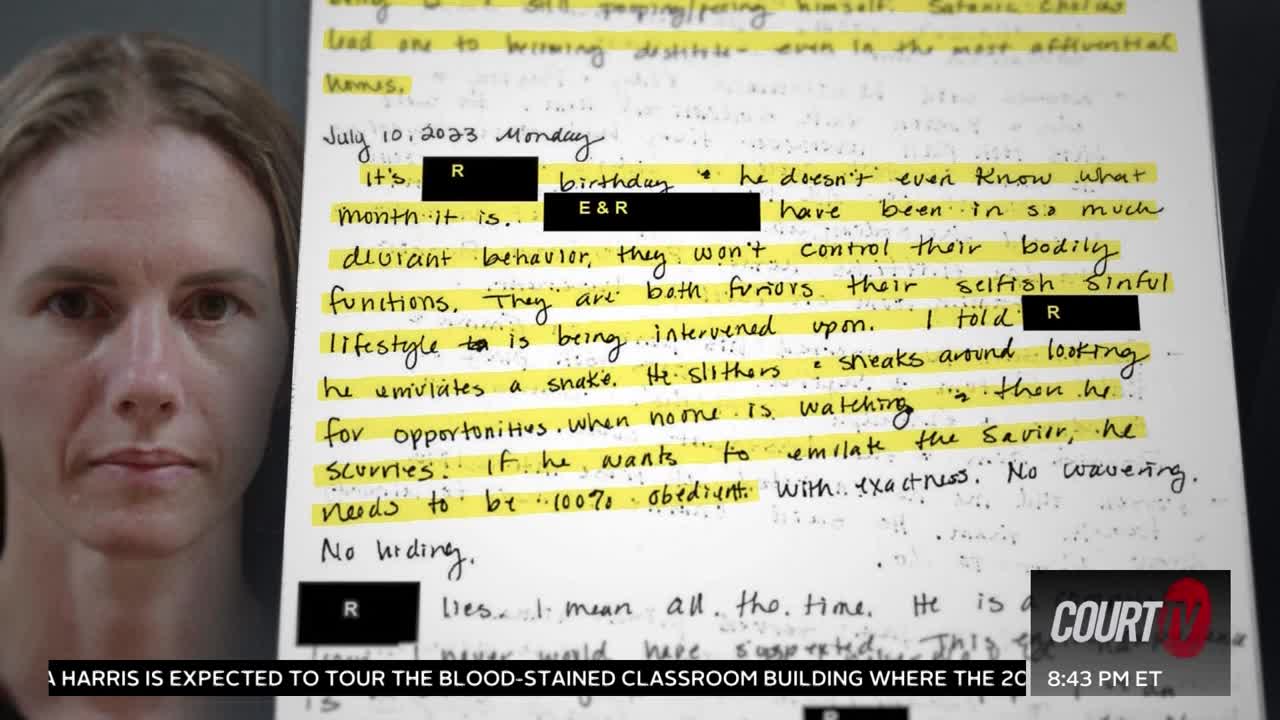 being still pooping/peeing himself. Satanic choices
lead one to becoming destitute - even in the most affluential
homes.
July 10, 2023 Monday
It's R birthday & he doesn't even know what
month it is. E & R have been in so much
deviant behavior, they won't control their bodily
functions. They are both furiors their selfish sinful
lifestyle is being intervened upon. I told R
he emulates a snake. He slithers & sneaks around looking
for opportunities when no one is watching & then he
scurries. If he wants to emulate the Savior, he
needs to be 100% obedient. With exactness. No wavering.
No hiding.
R lies. I mean all the time. He is a
I never would have suspected. This
is
R
COURT TV
A HARRIS IS EXPECTED TO TOUR THE BLOOD-STAINED CLASSROOM BUILDING WHERE THE 20
8:43 PM ET